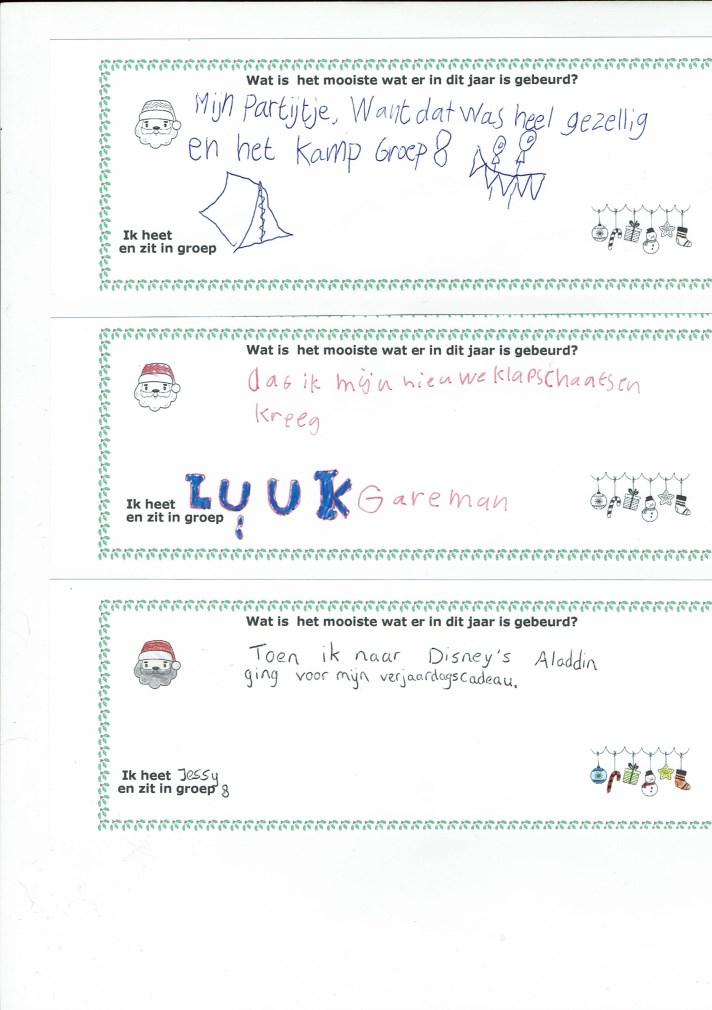 Wat is het mooiste wat er in dit jaar is gebeurd?
Mijn Partijtje, Want dat was heel gezellig
en het kamp Groep 8
Ik heet
en zit in groep
Wat is het mooiste wat er in dit jaar is gebeurd?
dat ik mijn nieuwe klapschaatsen
kreeg
Ik heet LUUK Gareman
en zit in groep
Wat is het mooiste wat er in dit jaar is gebeurd?
Toen ik naar Disney's Aladdin
ging voor mijn verjaardagscadeau.
Ik heet Jessy
en zit in groep 8